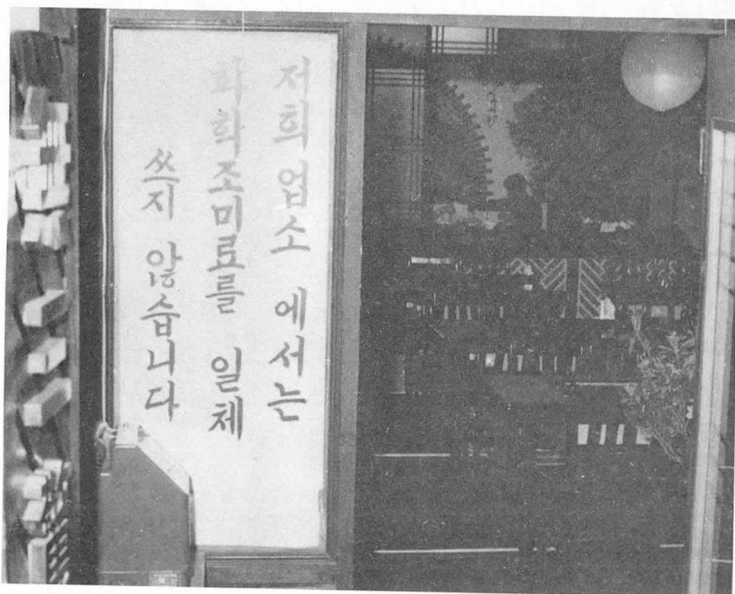 저희 업소 에서는
화학조미료를 일체
쓰지 않습니다